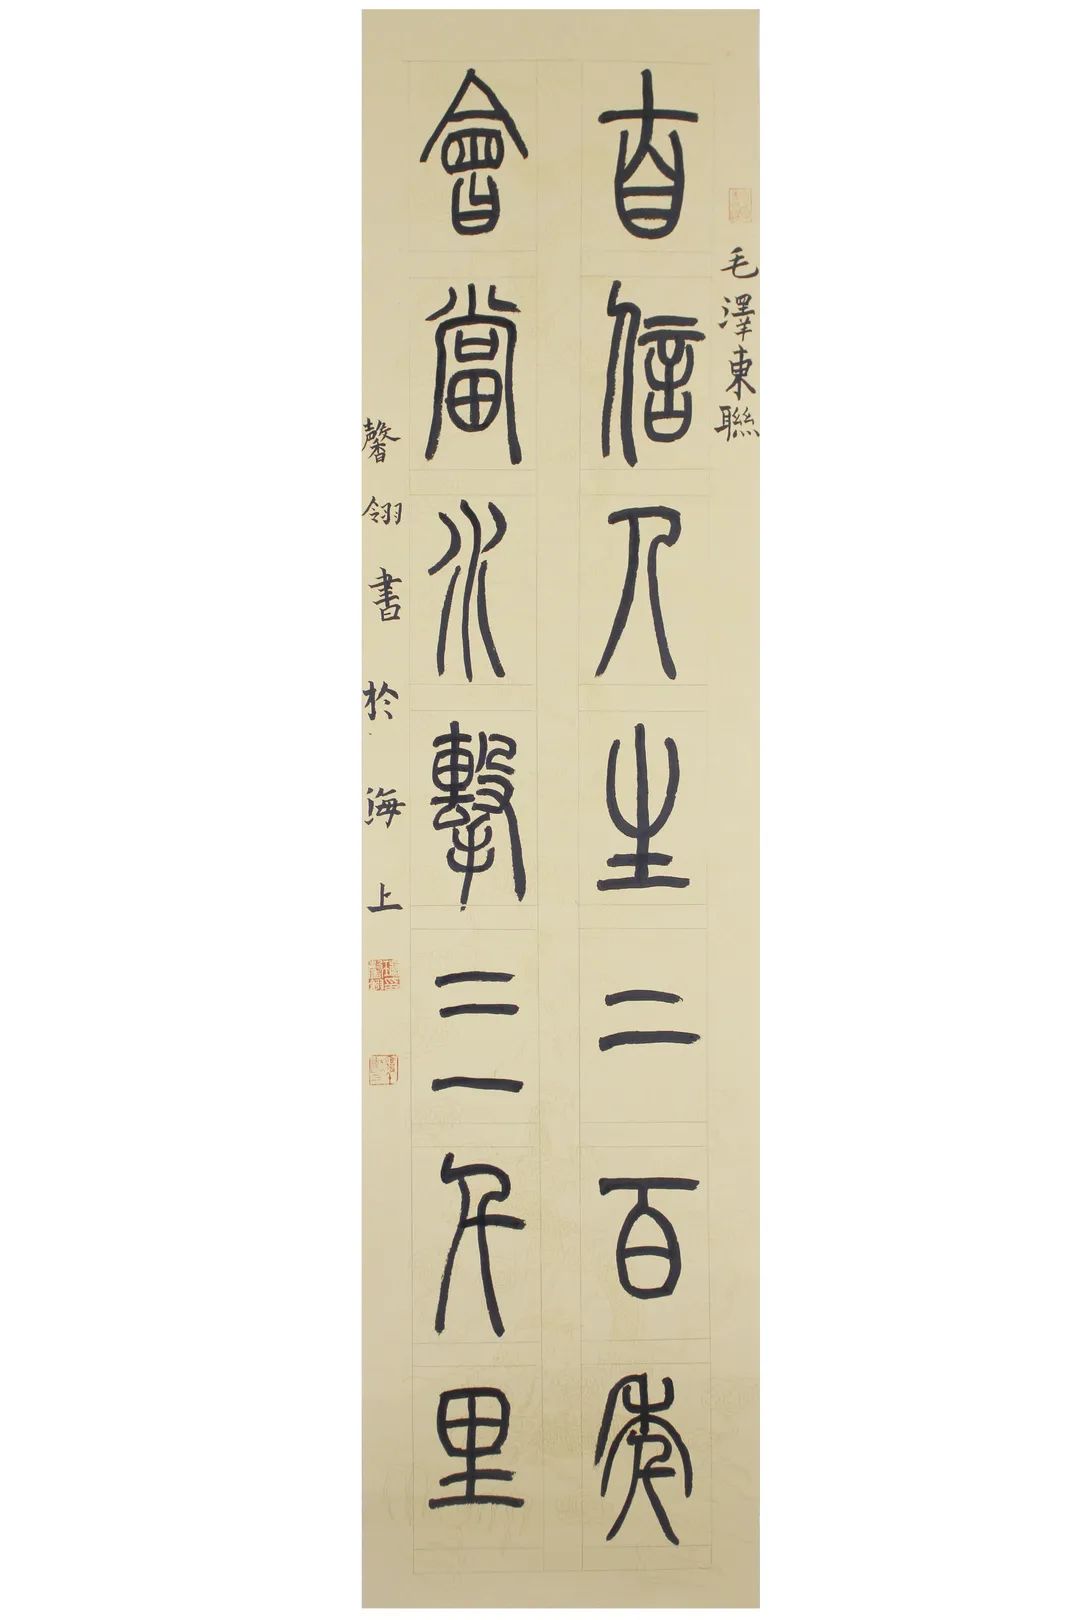 毛澤東聯
自信人生二百年
會當水擊三千里
馨翎書於海上